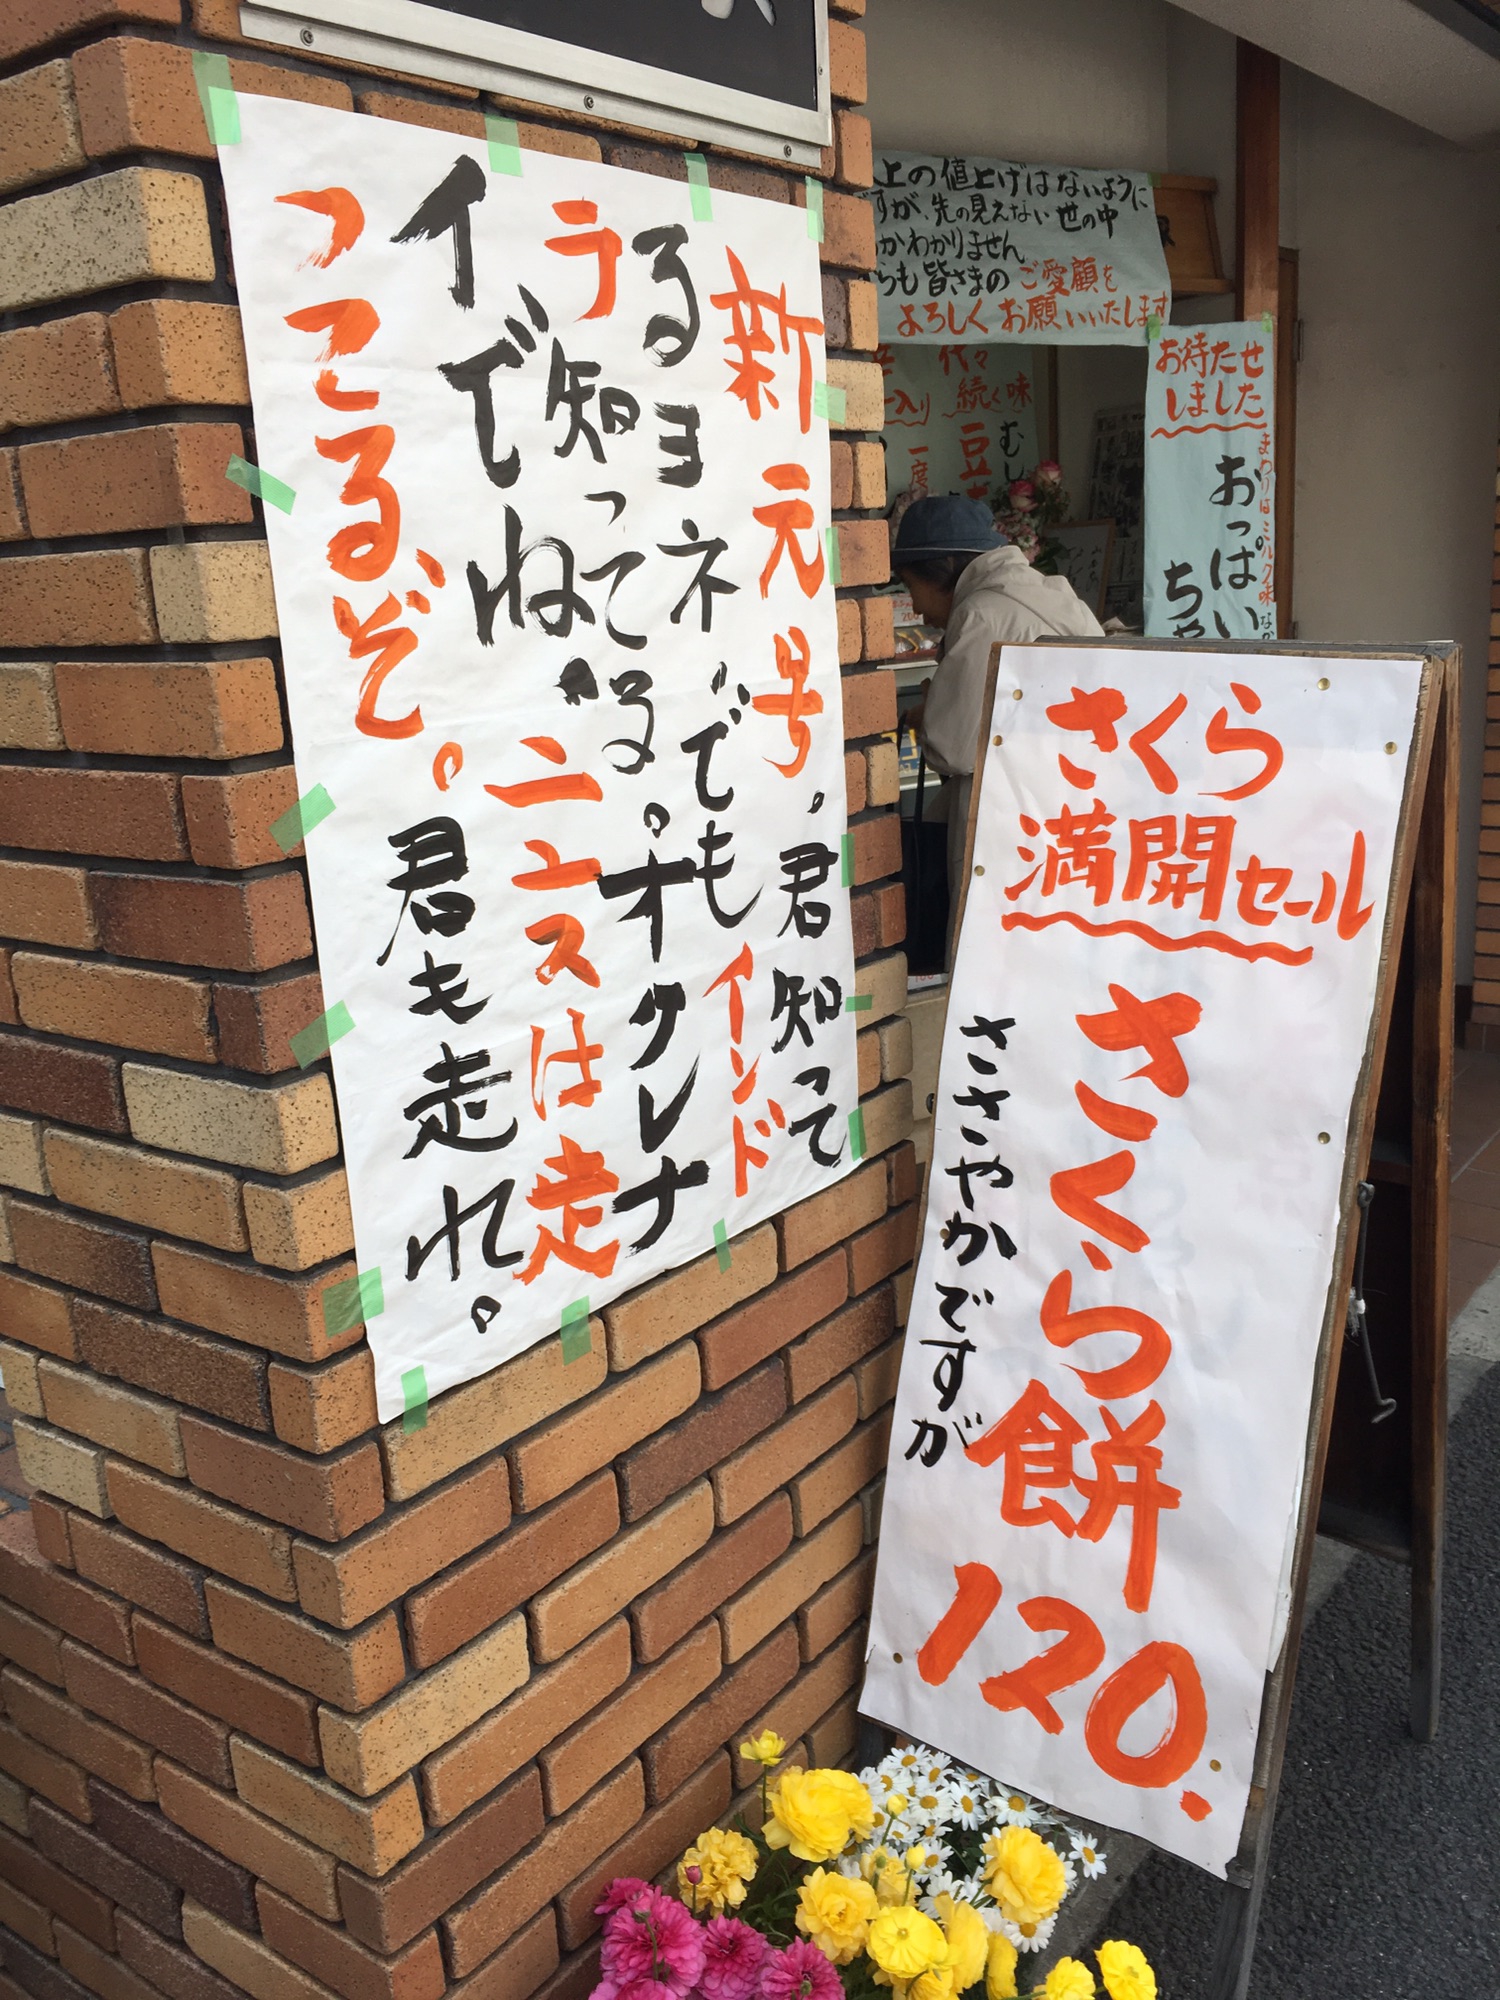 新元号。君知って
るヨネ、でもインド
ラ知ってる。オクレナ
イでね、ニュースは走
ってるぞ。君も走れ。
さくら
満開セール
さくら餅
ささやかですが
120.
上の値上げはないように
すが、先の見えない世の中
かわかりません
らも皆さまのご愛顧を
よろしくお願いいたします
代々
続く味
入り
一度
お待たせ
しました
まわりはミルク味
おっぱい